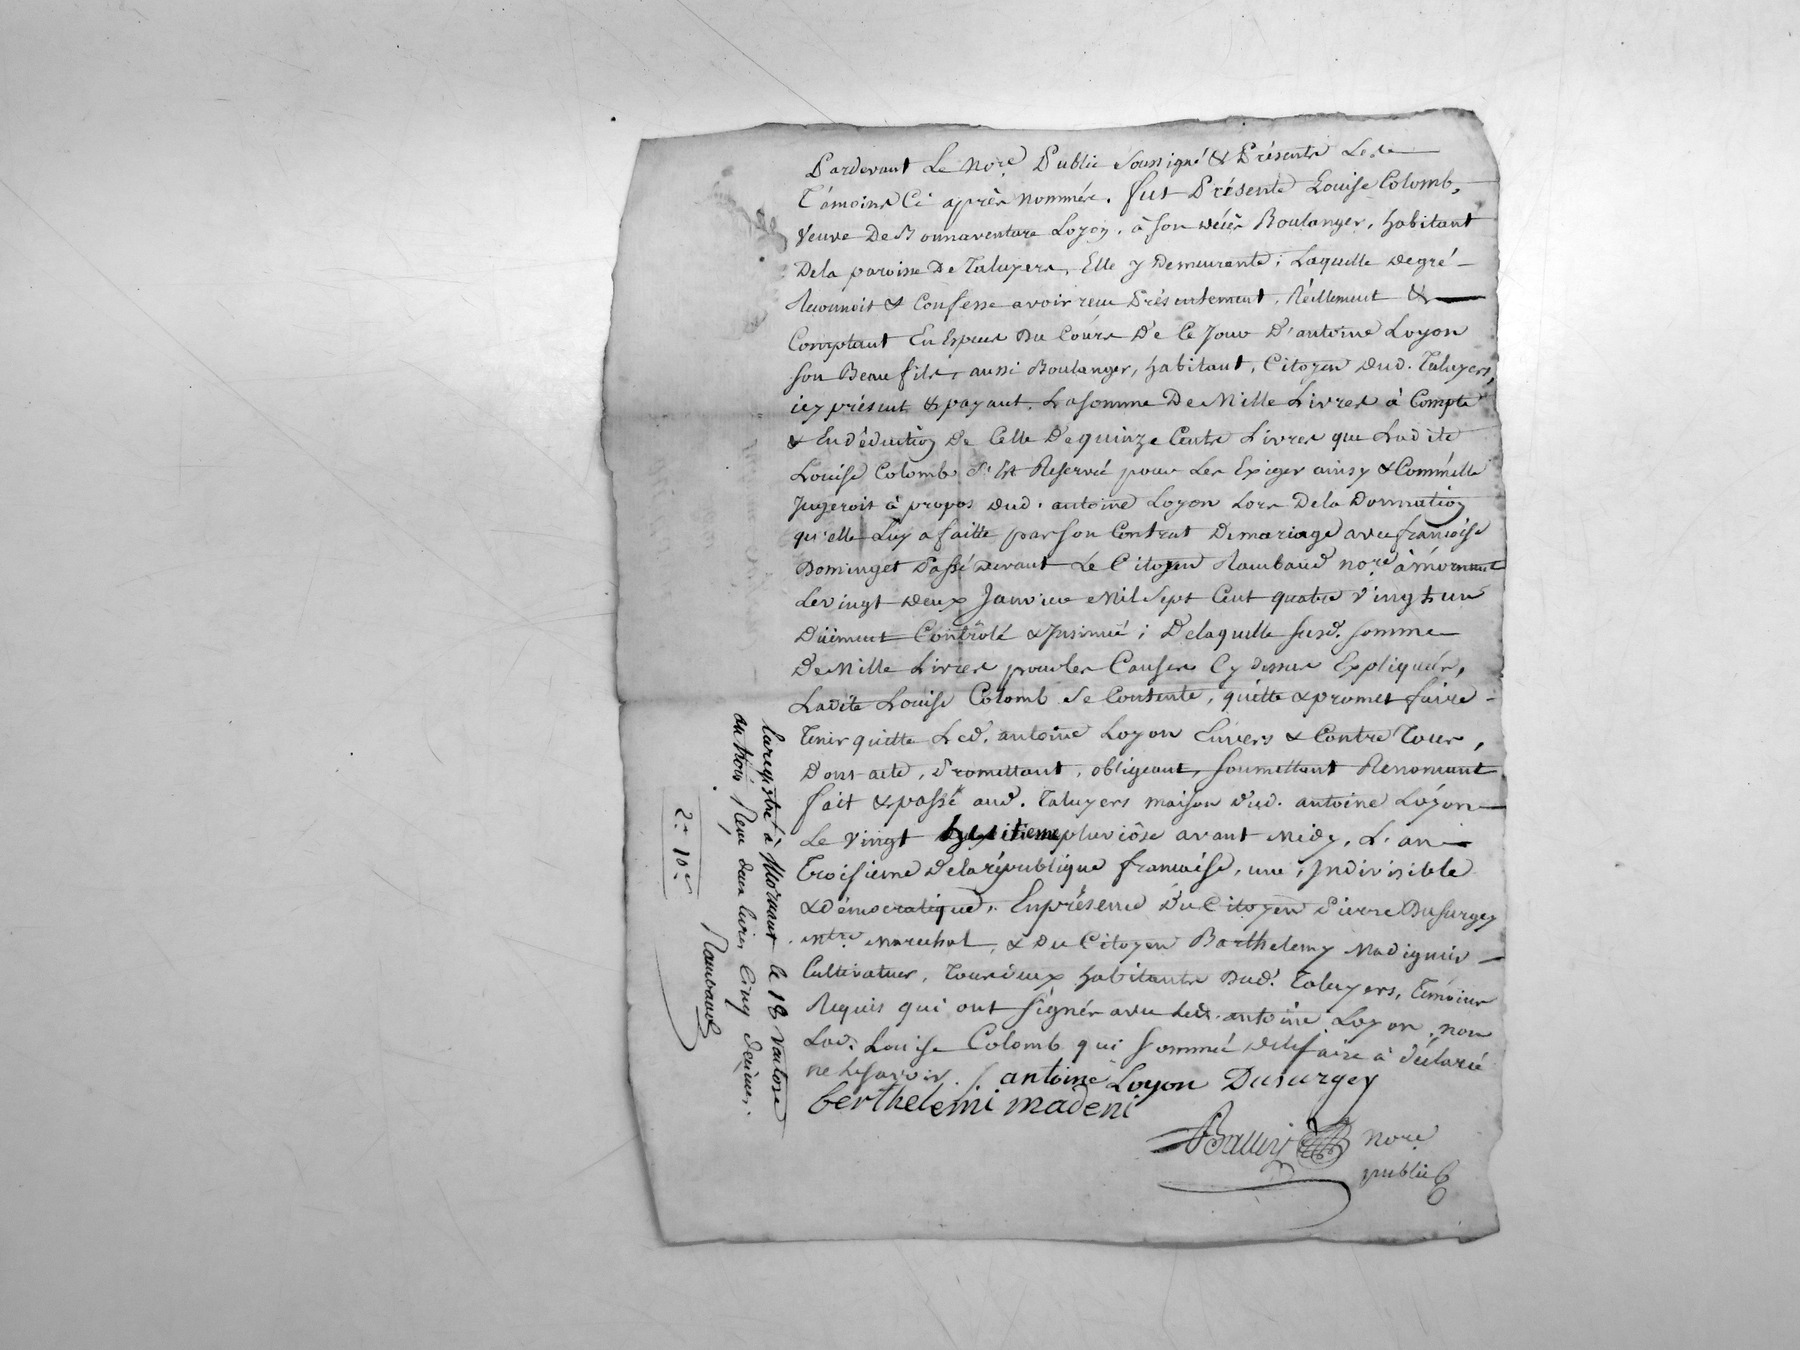 Pardevant Le Nore. Public Soussigné & Présents Les
Témoins Ci après nommés. fut Présente Louise Colomb,
Veuve De Bonnaventure Loyon, à son décès Boulanger, habitant
De la paroisse De Taluyers, Elle y Demeurante; Laquelle de gré
Reconnoit & Confesse avoir reçu Présentement, Réellement &
Comptant En Espèces Du Cours De Ce Jour D'antoine Loyon
son Beau fils, aussi Boulanger, habitant, Citoyen dud. Taluyers,
icy présent & payant, La somme De Mille Livres à Compte
& En déduction De Celle De quinze Cents Livres que Ladite
Louise Colomb S'est Reservé pour Les Exiger ainsy & Comm'elle
Jugeroit à propos dud. antoine Loyon Lors De la Donnation
qu'elle Luy a faitte par son Contrat De mariage avec françoise
Dominget Passé devant Le Citoyen Rambaud nore à mornant
Le vingt deux Janvier Mil Sept Cent quatre Vingt un
Düement Contrôlé & Insinué; De laquelle susd. somme
De Mille Livres pour les Causes Cy dessus Expliqués,
Ladite Louise Colomb Se Contente, quitte & promet faire
Tenir quitte Led. antoine Loyon Envers & Contre Tous,
Dont acte, Promettant, obligeant, soumettant Renonçant
fait & passé aud. Taluyers maison dud. antoine Loyon
Le Vingt huitieme pluviôse avant Midy, L'an
Troisieme De la république francaise, une, Indivisible
& Démocratique, En présence Du Citoyen Pierre Dusurgey
mtre Marechal, & Du Citoyen Barthelemy Madignier
Cultivateur, Tous deux habitants Dud. Taluyers, Témoins
Requis qui ont signés avec Led. antoine Loyon, non
Lad. Louise Colomb qui sommée de le faire à déclaré
ne le savoir. antoine Loyon Dusurgey
berthelemi madeni
nore
public
Enregistré à Mornant le 18 Vantose
an trois Reçu deux livres Cinq Décimes.
2.# 10.s
Rambaud